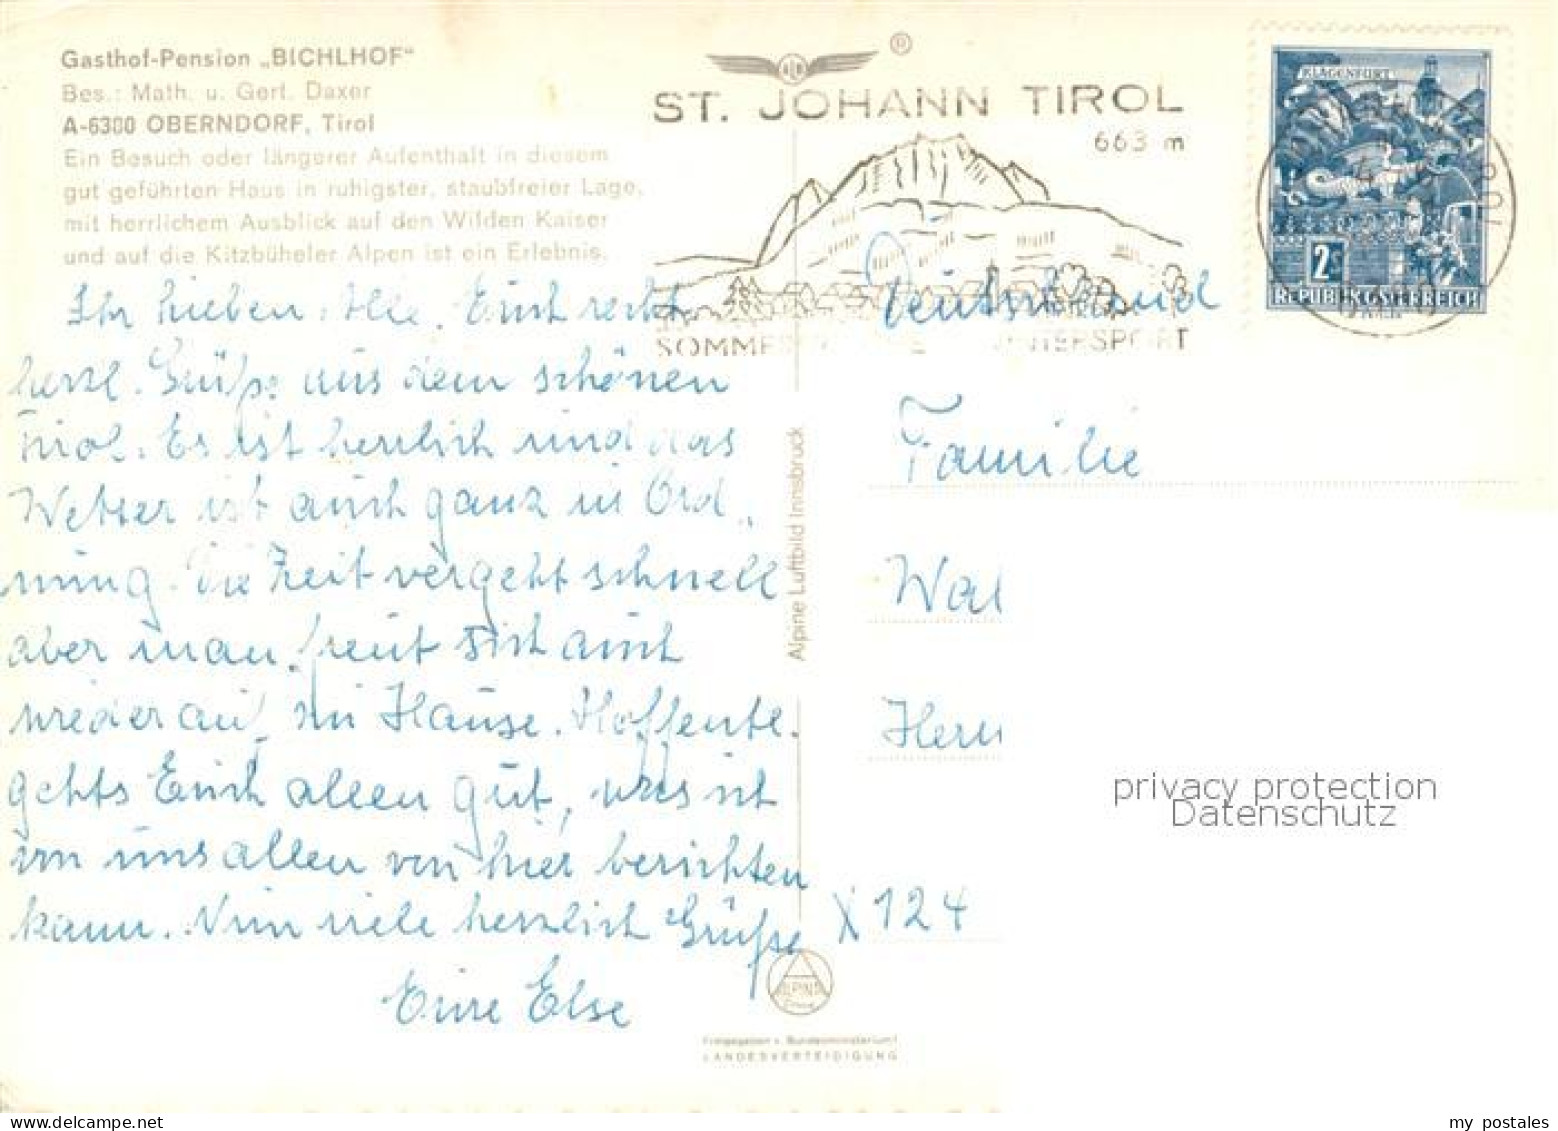 Gasthof-Pension „BICHLHOF“
Bes.: Math. u. Gert. Daxer
A-6380 OBERNDORF, Tirol
Ein Besuch oder längerer Aufenthalt in diesem
gut geführten Haus in ruhigster, staubfreier Lage,
mit herrlichem Ausblick auf den Wilden Kaiser
und auf die Kitzbüheler Alpen ist ein Erlebnis.
Ihr lieben Alle. Euch recht
herzl. Grüße aus dem schönen
Tirol. Es ist herrlich und das
Wetter ist auch ganz in Ord„
nung. Die Zeit vergeht schnell
aber man freut sich auch
wieder auf zu Hause. Hoffentl.
gehts Euch allen gut, was ich
von uns allen von hier berichten
kann. Nun viele herzlich Grüße
Eure Else
®
ST. JOHANN TIROL
663 m
SOMMER WINTERSPORT
KLAGENFURT
2S
REPUBLIK ÖSTERREICH
Deutschland
Familie
Wal
Herr
X 124
Alpine Luftbild Innsbruck
ALPINE
Freigegeben v. Bundesministerium f.
LANDESVERTEIDIGUNG
privacy protection
Datenschutz
my postales